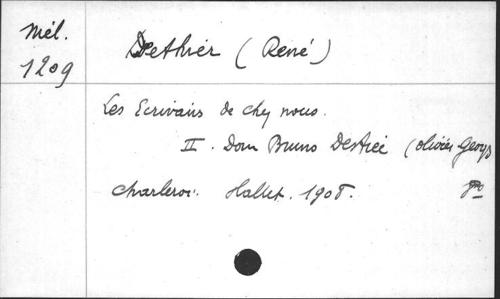 Mél.
1209
Dethier (René)
Les Ecrivains de chez nous.
II. Dom Bruno Destrée (Olivier Georges
Charleroi. Hallet. 1908. 8º